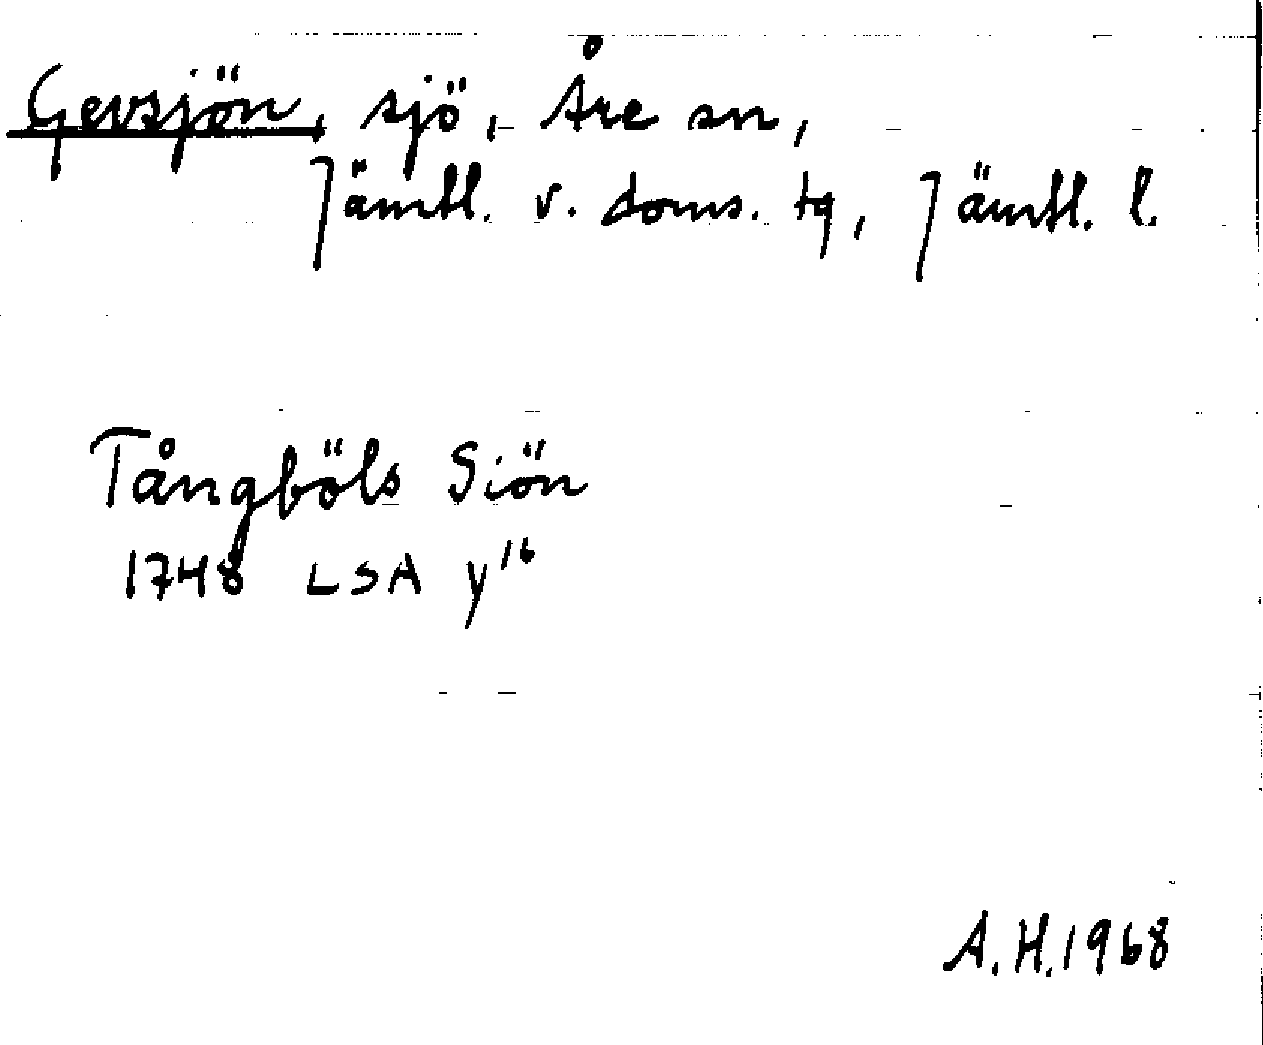 Gevsjön, sjö, Åre sn,
Jämtl. v. doms. tg, Jämtl. l.
Tångböls Siön
1748 LSA y¹⁶
A.H. 1968